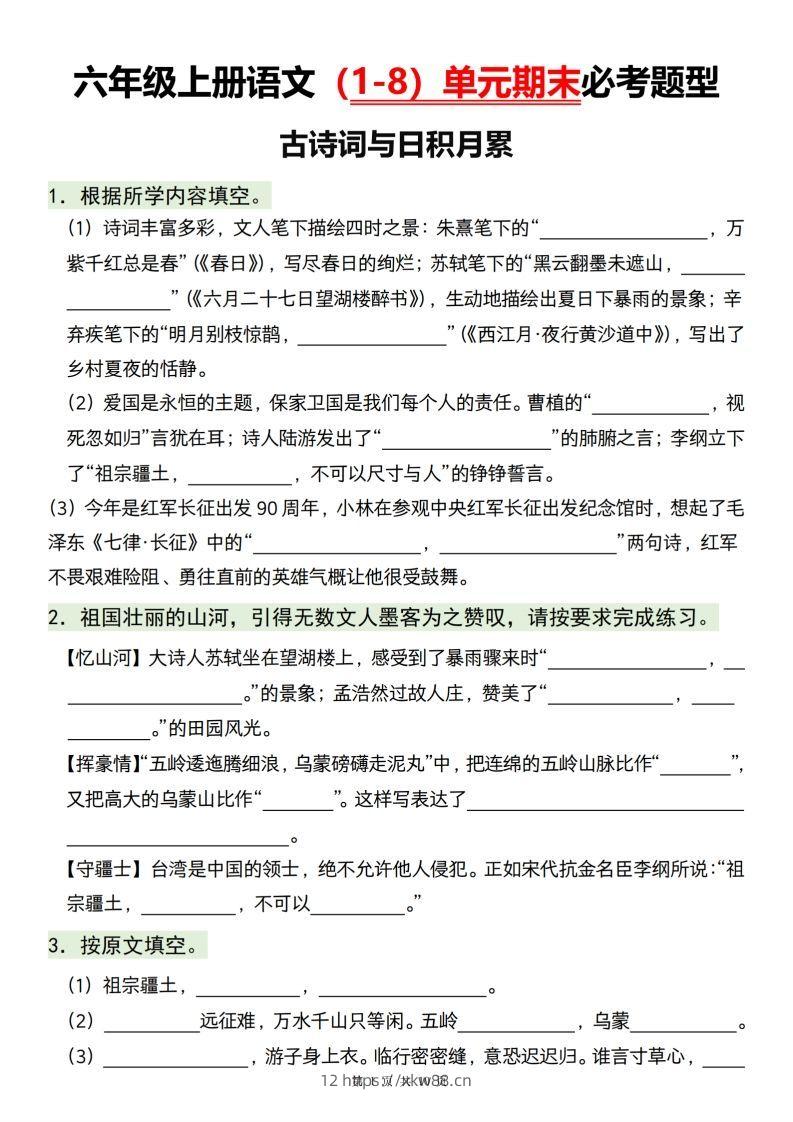 六年级上册语文（1-8）单元期末必考题型
古诗词与日积月累
1．根据所学内容填空。
（1）诗词丰富多彩，文人笔下描绘四时之景：朱熹笔下的“________________，万
紫千红总是春”（《春日》），写尽春日的绚烂；苏轼笔下的“黑云翻墨未遮山，______
__________”（《六月二十七日望湖楼醉书》），生动地描绘出夏日下暴雨的景象；辛
弃疾笔下的“明月别枝惊鹊，______________”（《西江月·夜行黄沙道中》），写出了
乡村夏夜的恬静。
（2）爱国是永恒的主题，保家卫国是我们每个人的责任。曹植的“___________，视
死忽如归”言犹在耳；诗人陆游发出了“________________”的肺腑之言；李纲立下
了“祖宗疆土，__________，不可以尺寸与人”的铮铮誓言。
（3）今年是红军长征出发 90 周年，小林在参观中央红军长征出发纪念馆时，想起了毛
泽东《七律·长征》中的“________________，________________”两句诗，红军
不畏艰难险阻、勇往直前的英雄气概让他很受鼓舞。
2．祖国壮丽的山河，引得无数文人墨客为之赞叹，请按要求完成练习。
【忆山河】大诗人苏轼坐在望湖楼上，感受到了暴雨骤来时“_______________，__
________________。”的景象；孟浩然过故人庄，赞美了“____________，____
________。”的田园风光。
【挥豪情】“五岭逶迤腾细浪，乌蒙磅礴走泥丸”中，把连绵的五岭山脉比作“_______”，
又把高大的乌蒙山比作“_______”。这样写表达了__________________________
_____________________。
【守疆士】台湾是中国的领士，绝不允许他人侵犯。正如宋代抗金名臣李纲所说：“祖
宗疆土，_________，不可以_________。”
3．按原文填空。
（1）祖宗疆土，__________，________________。
（2）_________远征难，万水千山只等闲。五岭___________，乌蒙__________。
（3）______________，游子身上衣。临行密密缝，意恐迟迟归。谁言寸草心，____